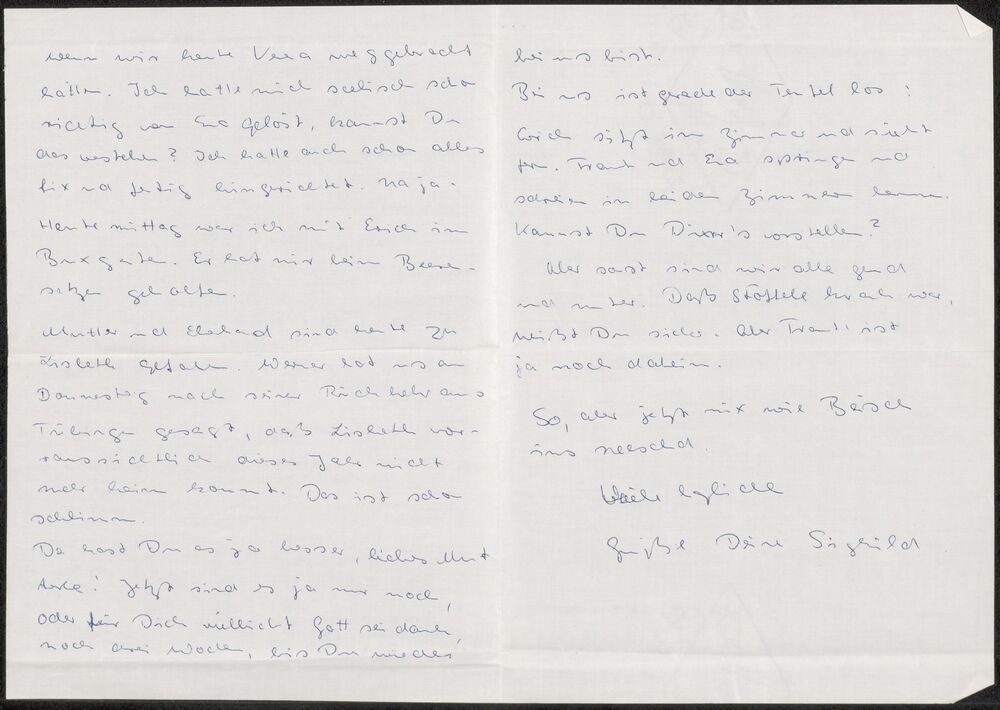 wenn wir heute Vera weggebracht
hätten. Ich hatte mich seelisch schon
richtig von Eva gelöst, kannst Du
das verstehen? Ich hatte auch schon alles
fix und fertig hingerichtet. Na ja.
Heute mittag war ich mit Erich im
Garten. Er hat mir beim Beeren-
setzen geholfen.
Mutter und Ekehard sind heute zu
Lisbeth gefahren. Werner hat uns am
Donnerstag nach seiner Rückkehr aus
Tübingen gesagt, daß Lisbeth vor-
raussichtlich dieses Jahr nicht
mehr heim kommt. Das ist schon
schlimm.
Da hast Du es ja besser, liebes Mut
terle! Jetzt sind es ja nur noch,
oder für Dich vielleicht Gott sei dank,
noch drei Wochen, bis Du wieder
bei uns bist.
Bei uns ist gerade der Teufel los!
Erich sitzt im Zimmer und sieht
fern. Traut und Eva springen und
schreien in beiden Zimmern herum.
Kannst Du Dirrr's vorstellen?
Aber sonst sind wir alle gsund
und munter. Daß Stöffele krank war,
weißt Du sicher. Aber Trautl ist
ja noch daheim.
So, aber jetzt nix wie
ins
Viele herzliche
Grüße Deine Sighild